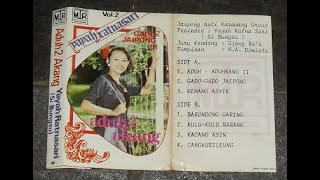 Aduh2 Akang
Yayah Ratnasari
(Si Bungsu)
MTR
Vol.2
yayah ratnasari
GADO2
JAIPONG
aduh2
akang
Jaipong Asli Karawang Group
Pesinden : Yayah Ratna Sari
(Si Bungsu)
Juru Kendang : Ujang Bo'a
Pimpinan : H.A. Dimiati
SIDE A.
1. ADUH - ADUHKANG II
2. GADO-GADO JAIPONG
3. MEMANG ASYIK
SIDE B.
1. BARONDONG GARING
2. KULU-KULU BARANG
3. KACANG ASIN
4. CANGKURILEUNG